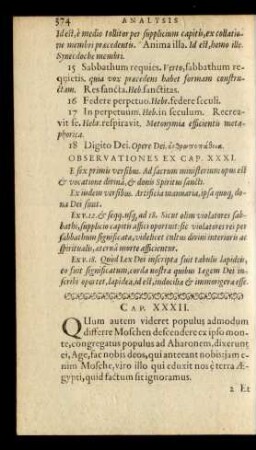 574 ANALYSIS
Id est, è medio tollitor per supplicium capitis, ex collatione
membri præcedentis. Anima illa. Id est, homo ille.
Synecdoche membri.
15 Sabbathum requies. Verto, sabbathum requietis.
quia vox præcedens habet formam constructam.
Res sancta. Heb. sanctitas.
16 Federe perpetuo. Hebr. federe seculi.
17 In perpetuum. Heb. in seculum. Recreavit
se. Hebr. respiravit. Metonymia efficientis metaphorica.
18 Digito Dei. Opere Dei. ἀνθρωποπάθεια.
OBSERVATIONES EX CAP. XXXI.
E sex primis versibus. Ad sacrum ministerium opus est
& vocatione divina, & donis Spiritus sancti.
Ex iisdem versibus. Artificia manuaria, ipsa quoque dona
Dei sunt.
Ex v. 12. & seqq. usq; ad 18. Sicut olim violatores sabbathi,
supplicio capitis affici oportuit: sic violatores rei per
sabbathum significata, videlicet cultus divini interioris ac
spiritualis, æterna morte afficientur.
Ex v. 18. Quod Lex Dei inscripta fuit tabulis lapideis,
eo fuit significatum, corda nostra quibus Legem Dei inscribi
oportet, lapidea, id est, indocilia & immorigera esse.
CAP. XXXII.
QUum autem videret populus admodum
differre Moschen descendere ex ipso monte,
congregatus populus ad Aharonem, dixerunt
ei, Age, fac nobis deos, qui anteeant nobis: jam enim
Mosche, viro illo qui eduxit nos è terra Ægypti,
quid factum sit ignoramus.
2 Et